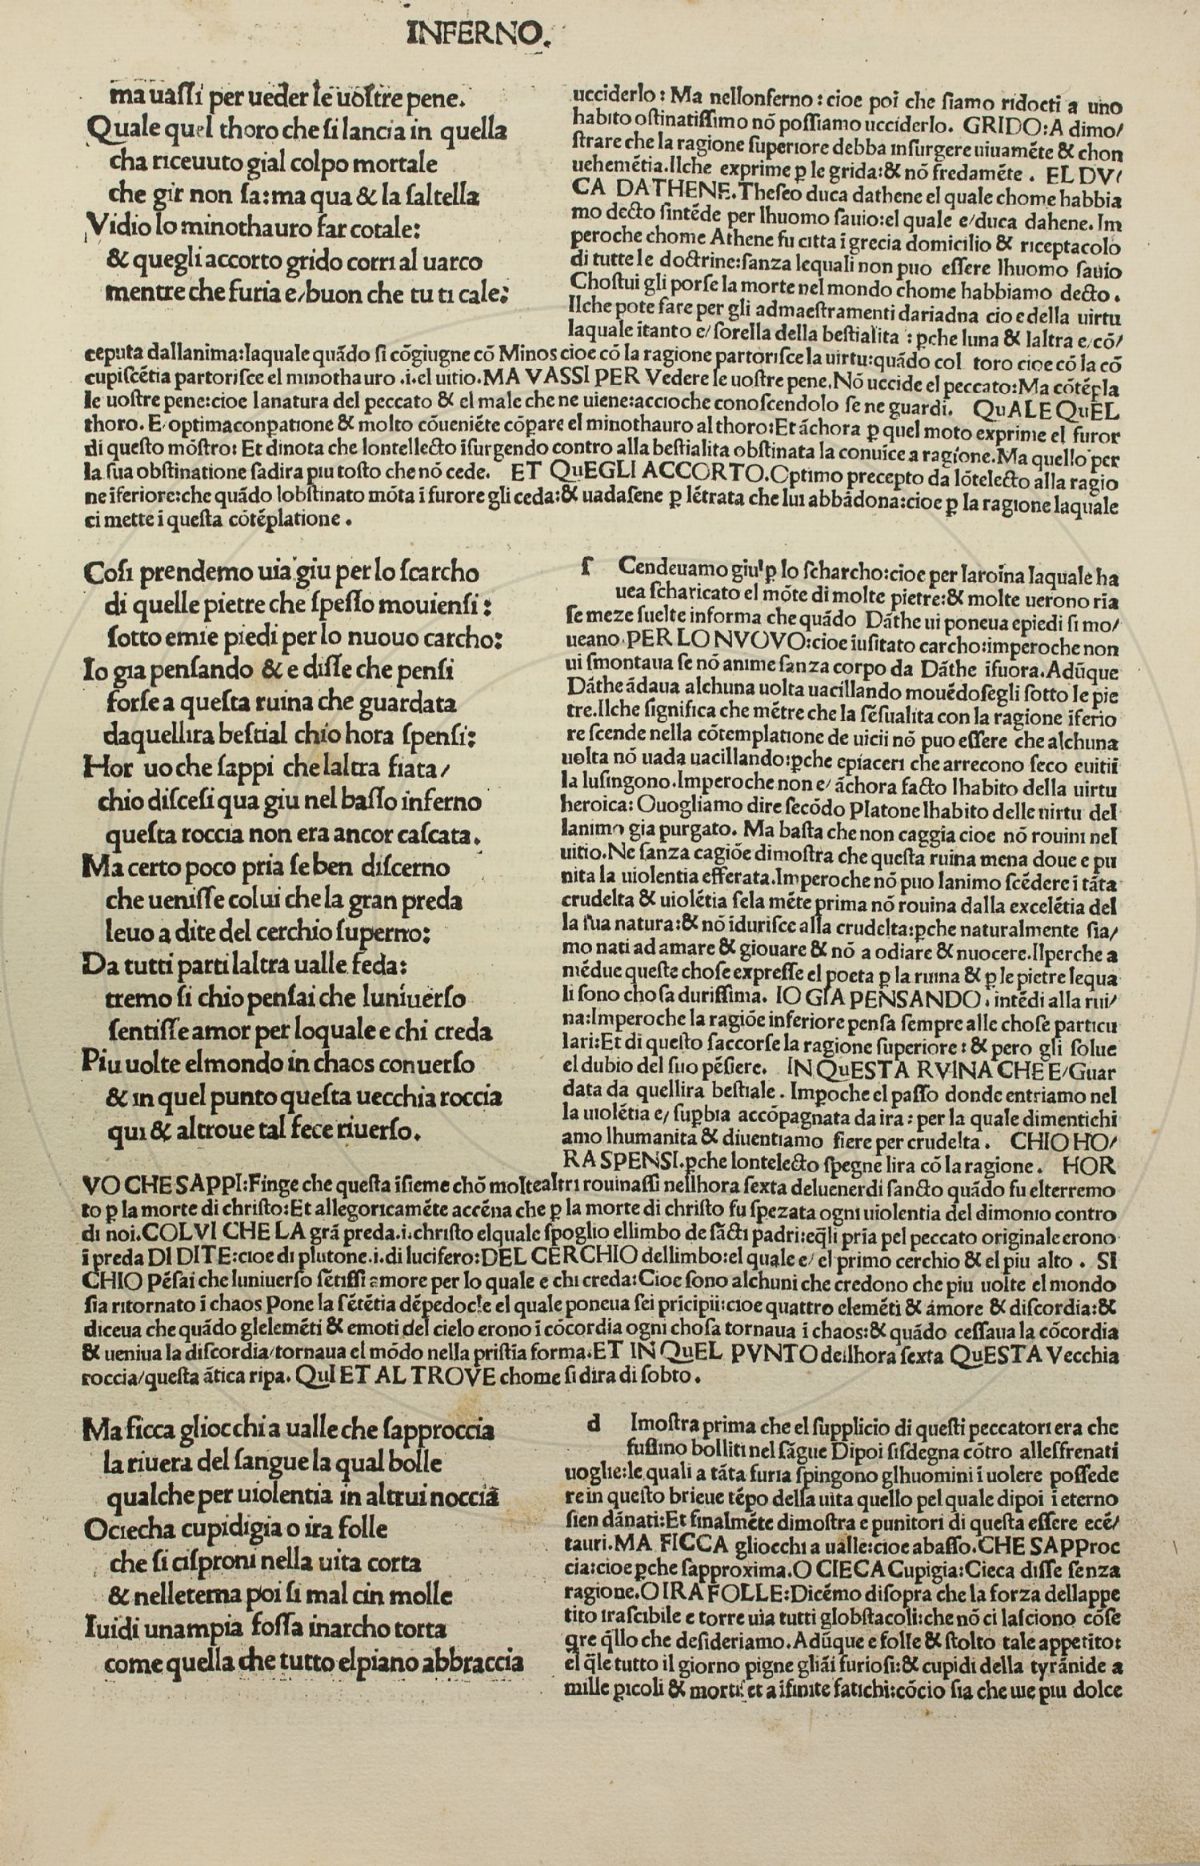 INFERNO.
ma uaſſi per ueder le uoſtre pene.
Quale quel thoro che ſi lancia in quella
cha riceuuto gial colpo mortale
che gir non ſa: ma qua & la ſaltella
Vidio lo minothauro far cotale:
& quegli accorto grido corri al uarco
mentre che furia e/ buon che tu ti cale:
ucciderlo: Ma nellonferno: cioe poi che ſiamo ridocti a uno
habito oſtinatiſſimo nō poſſiamo ucciderlo. GRIDO: A dimo/
ſtrare che la ragione ſuperiore debba inſurgere uiuamēte & chon
uehemētia. Ilche exprime ꝑ le grida: & nō fredamēte. EL DV/
CA DATHENE. Theſeo duca dathene el quale chome habbia
mo decto ſintēde per lhuomo ſauio: el quale e/ duca dahene. Im
peroche chome Athene fu citta ī grecia domicilio & riceptacolo
di tutte le doctrine: ſanza lequali non puo eſſere lhuomo ſauio
Choſtui gli porſe la morte nel mondo chome habbiamo decto.
Ilche pote fare per gli admaeſtramenti dariadna cioe della uirtu
laquale itanto e/ ſorella della beſtialita: ꝑche luna & laltra e/ cō/
ceputa dallanima: laquale quādo ſi cōgiugne cō Minos cioe cō la ragione partoriſce la uirtu: quādo col toro cioe cō la cō
cupiſcētia partoriſce el minothauro .i. el uitio. MA VASSI PER Vedere le uoſtre pene. Nō uccide el peccato: Ma cōtēpla
le uoſtre pene: cioe lanatura del peccato & el male che ne uiene: accioche conoſcendolo ſe ne guardi. QuALE QuEL
thoro. E/ optima conpatione & molto cōueniēte cōpare el minothauro al thoro: Et āchora ꝑ quel moto exprime el furor
di queſto mōſtro: Et dinota che lontellecto īſurgendo contro alla beſtialita obſtinata la conuīce a ragione. Ma quello per
la ſua obſtinatione ſadira piu toſto che nō cede. ET QuEGLI ACCORTO. Optimo precepto da lōtelecto alla ragio
ne īferiore: che quādo lobſtinato mōta ī furore gli ceda: & uadaſene ꝑ lētrata che lui abbādona: cioe ꝑ la ragione laquale
ci mette i queſta cōtēplatione.
Coſi prendemo uia giu per lo ſcarcho
di quelle pietre che ſpeſſo mouienſi:
ſotto emie piedi per lo nuouo carcho:
Io gia penſando & e diſſe che penſi
forſe a queſta ruina che guardata
daquellira beſtial chio hora ſpenſi:
Hor uo che ſappi che laltra fiata/
chio diſceſi qua giu nel baſſo inferno
queſta roccia non era ancor caſcata.
Ma certo poco pria ſe ben diſcerno
che ueniſſe colui che la gran preda
leuo a dite del cerchio ſuperno:
Da tutti parti laltra ualle feda:
tremo ſi chio penſai che luniuerſo
ſentiſſe amor per loquale e chi creda
Piu uolte elmondo in chaos conuerſo
& in quel punto queſta uecchia roccia
qui & altroue tal fece riuerſo.
ſ Cendeuamo giu ꝑ lo ſcharcho: cioe per laroīna laquale ha
uea ſcharicato el mōte di molte pietre: & molte uerono ria
ſe meze ſuelte informa che quādo Dāthe ui poneua epiedi ſi mo/
ueano. PER LO NVOVO: cioe iuſitato carcho: imperoche non
ui ſmontaua ſe nō anime ſanza corpo da Dāthe īfuora. Adūque
Dāthe ādaua alchuna uolta uacillando mouēdoſegli ſotto le pie
tre. Ilche ſignifica che mētre che la ſēſualita con la ragione īferio
re ſcende nella cōtemplatione de uicii nō puo eſſere che alchuna
uolta nō uada uacillando: ꝑche epiaceri che arrecono ſeco euitii
la luſingono. Imperoche non e/ āchora facto lhabito della uirtu
heroica: Ouogliamo dire ſecōdo Platone lhabito delle uirtu del
lanimo gia purgato. Ma baſta che non caggia cioe nō rouini nel
uitio. Ne ſanza cagiōe dimoſtra che queſta ruina mena doue e pu
nita la uiolentia efferata. Imperoche nō puo lanimo ſcēdere ī tāta
crudelta & uiolētia ſela mēte prima nō rouina dalla excelētia del
la ſua natura: & nō īduriſce alla crudelta: ꝑche naturalmente ſia/
mo nati ad amare & giouare & nō a odiare & nuocere. Ilperche a
mēdue queſte choſe expreſſe el poeta ꝑ la ruina & ꝑ le pietre lequa
li ſono choſa duriſſima. IO GIA PENSANDO. intēdi alla rui/
na: Imperoche la ragiōe inferiore penſa ſempre alle choſe particu
lari: Et di queſto ſaccorſe la ragione ſuperiore: & pero gli ſolue
el dubio del ſuo pēſiere. IN QuESTA RVINA CHE E/ Guar
data da quellira beſtiale. Impoche el paſſo donde entriamo nel
la uiolētia e/ ſuꝑbia accōpagnata da ira: per la quale dimentichi
amo lhumanita & diuentiamo fiere per crudelta. CHIO HO/
RA SPENSI. ꝑche lontelecto ſpegne lira cō la ragione. HOR
VO CHE SAPPI: Finge che queſta īſieme chō moltealtri rouinaſſi nellhora ſexta deluenerdi ſancto quādo fu elterremo
to ꝑ la morte di chriſto: Et allegoricamēte accēna che ꝑ la morte di chriſto fu ſpezata ogni uiolentia del dimonio contro
di noi. COLVI CHE LA grā preda .i. chriſto elquale ſpoglio ellimbo de ſācti padri: eq̄li pria pel peccato originale erono
ī preda DI DITE: cioe di plutone .i. di lucifero: DEL CERCHIO dellimbo: el quale e/ el primo cerchio & el piu alto. SI
CHIO Pēſai che luniuerſo ſētiſſi amore per lo quale e chi creda: Cioe ſono alchuni che credono che piu uolte el mondo
ſia ritornato ī chaos Pone la ſētētia dēpedocle el quale poneua ſei pricipii: cioe quattro elemēti & amore & diſcordia: &
diceua che quādo glelemēti & emoti del cielo erono ī cōcordia ogni choſa tornaua ī chaos: & quādo ceſſaua la cōcordia
& ueniua la diſcordia/ tornaua el mōdo nella priſtīa forma. ET IN QuEL PVNTO dellhora ſexta QuESTA Vecchia
roccia/ queſta ātica ripa. QuI ET ALTROVE chome ſi dira di ſobto.
Ma ficca gliocchi a ualle che ſapproccia
la riuera del ſangue la qual bolle
qualche per uiolentia in altrui noccia
Ociecha cupidigia o ira folle
che ſi ciſproni nella uita corta
& nelleterna poi ſi mal cin molle
Iuidi unampia foſſa inarcho torta
come quella che tutto elpiano abbraccia
d Imoſtra prima che el ſupplicio di queſti peccatori era che
fuſſino bolliti nel ſāgue Dipoi ſiſdegna cōtro alleffrenati
uoglie: le quali a tāta furia ſpingono glhuomini ī uolere poſſede
re in queſto brieue tēpo della uita quello pel quale dipoi ī eterno
ſien dānati: Et finalmēte dimoſtra e punitori di queſta eſſere ecē/
tauri. MA FICCA gliocchi a ualle: cioe abaſſo. CHE SAPProc
cia: cioe ꝑche ſapproxima. O CIECA Cupigia: Cieca diſſe ſenza
ragione. O IRA FOLLE: Dicēmo diſopra che la forza dellappe
tito iraſcibile e torre uia tutti globſtacoli: che nō ci laſciono cōſe
gre q̄llo che deſideriamo. Adūque e folle & ſtolto tale appetito:
el q̄le tutto il giorno pigne gliāi furioſi: & cupidi della tyrānide a
mille ꝑicoli & morti: et a īfinite fatichi: cōcio ſia che uie piu dolce